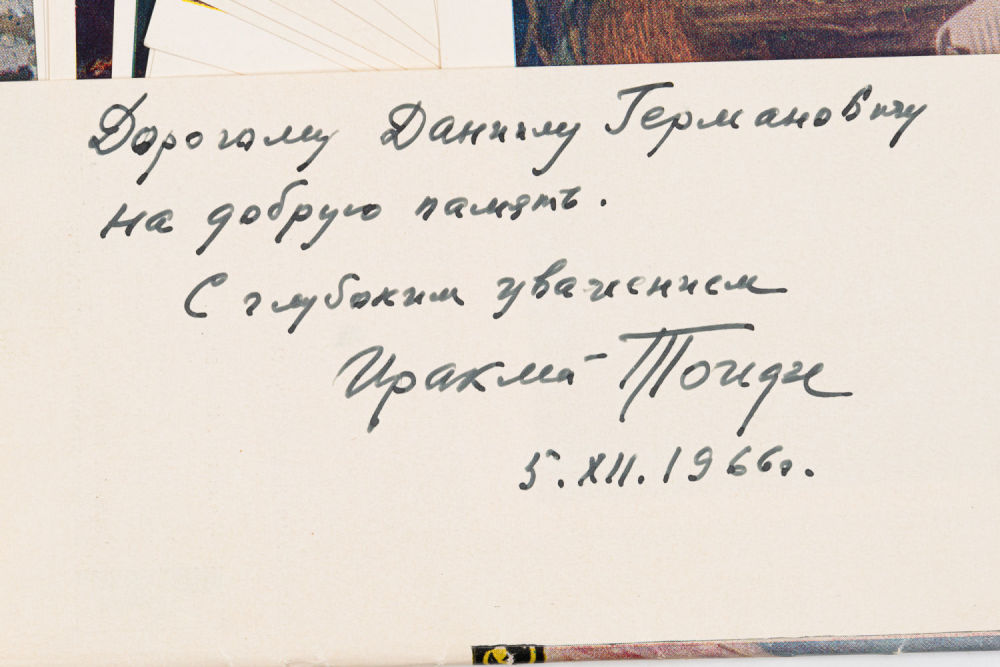 Дорогому Даниилу Германовичу
на добрую память.
С глубоким уважением
Ираклий Тоидзе
5.XII.1966г.